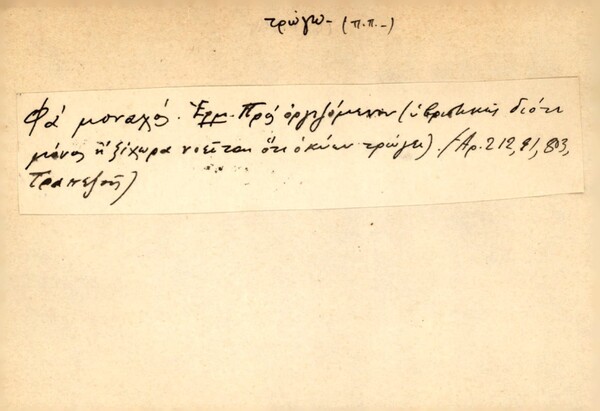 τρώγω - (π.π. -)
Φά μοναχός. Ἑρμ. Πρός ὀργιζόμενον (ὑβριστικῶς διότι
μόνος ἤ ξέχωρα νοεῖται ὅτι ὁ κύων τρώγει). (Αρ. 212, 91, 803,
Τραπεζοῦς)